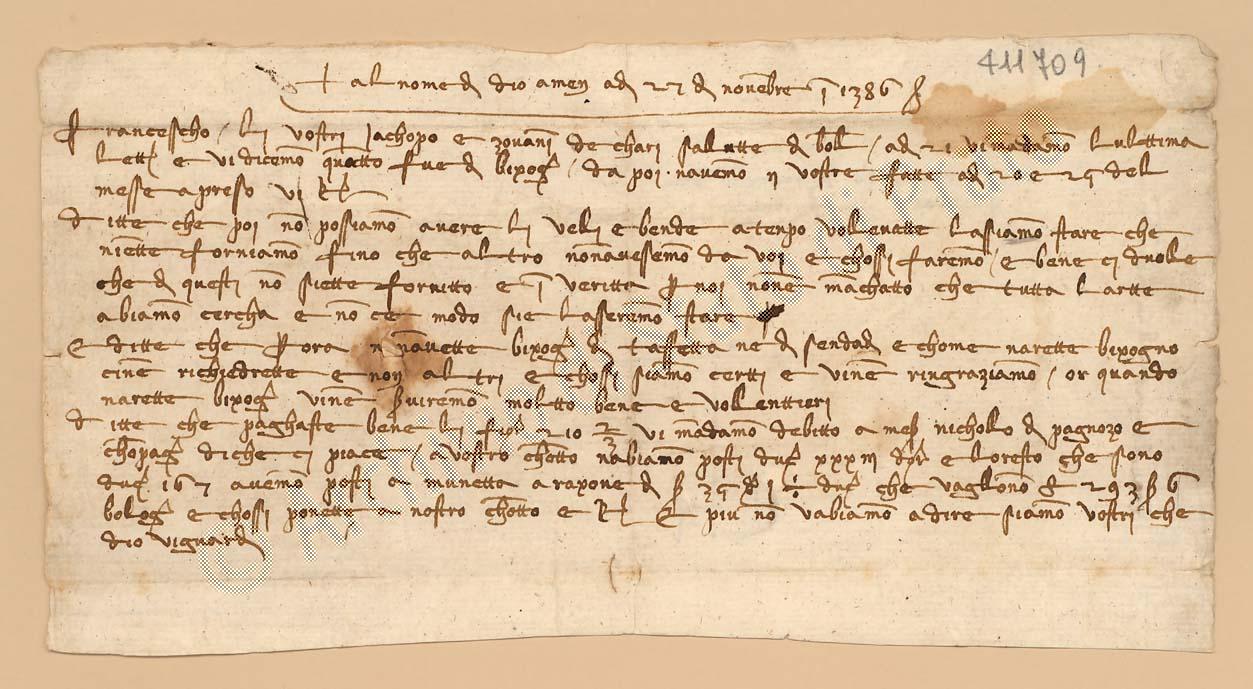 411709
+ al nome d dio amen ad 27 d novēbre ī 1386
Francescho / li vostri Jachopo e zovani de chari salutte d bol / ad 21 vi mādamō lulettima
lett e vi dicemō quātto fue d bixog / da poi navemō 11 vostre fatte ad 20 e 25 del
messe apreso vi R
ditte che poi nō possiamō avere li veli e bende atenpo volenatte lasiamō stare che
niette forniamō fino che altro nonavesemō da voi e chossi faremō / e bene ci duole
che d questi nō siette fornitto e ī veritta p noi nonē māchatto che tutta lartte
abiamō cercha e nō ce modo sie lasseremō stare
E ditte che p ora nōnavette bixog d taffetta ne d sendad e chome narette bixogno
cinē richiedrette e non altri e chossi siamō certti e vinē ringraziamō / or quando
narette bixog vinē sviremō moltto bene e volenttieri
ditte che paghaste bene li fior 210 vi mādamō debitto a mes nichollo d pagnozo e
chōpag diche ci piace / a vostro chōtto nabiamō posti duc xxxiii dor e loresto che sono
duc 167 avemō posti a munetta a raxone d s 35 duc che vaglionō 293 s 6
bolog e chossi ponette a nostro chōtto e R E piu nō vabiamō a dire siamō vostri che
dio vi guard